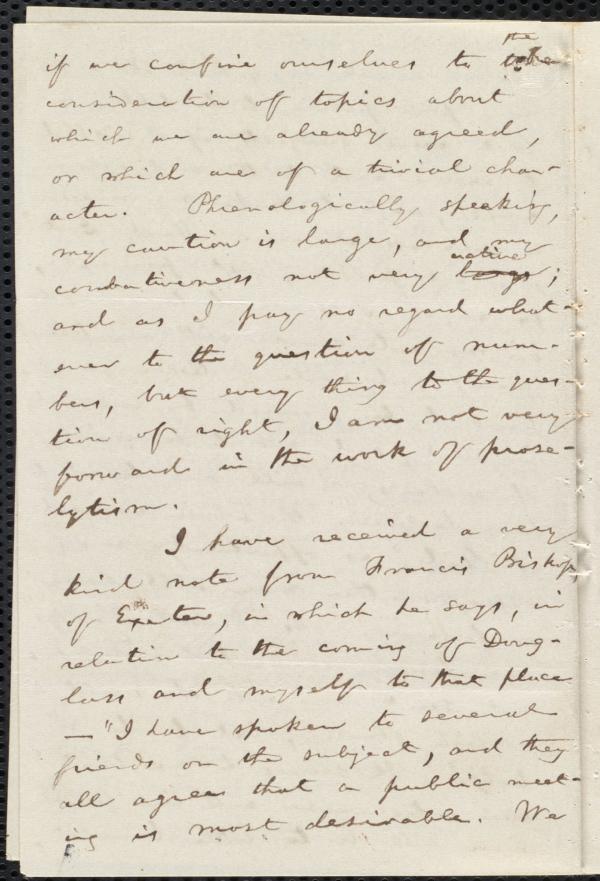 the
if we confine ourselves to
consideration of topics about
which we are already agreed,
or which are of a trivial char-
acter. Phrenologically speaking,
my caution is large, and my
active
combativeness not very large;
and as I pay no regard what-
ever to the question of num-
bers, but every thing to the ques-
tion of right, I am not very
forward in the work of prose-
lytism.
I have received a very
kind note from Francis Bishop
of Exeter, in which he says, in
relation to the coming of Doug-
lass and myself to that place
—"I have spoken to several
friends on the subject, and they
all agree that a public meet-
ing is most desirable. We